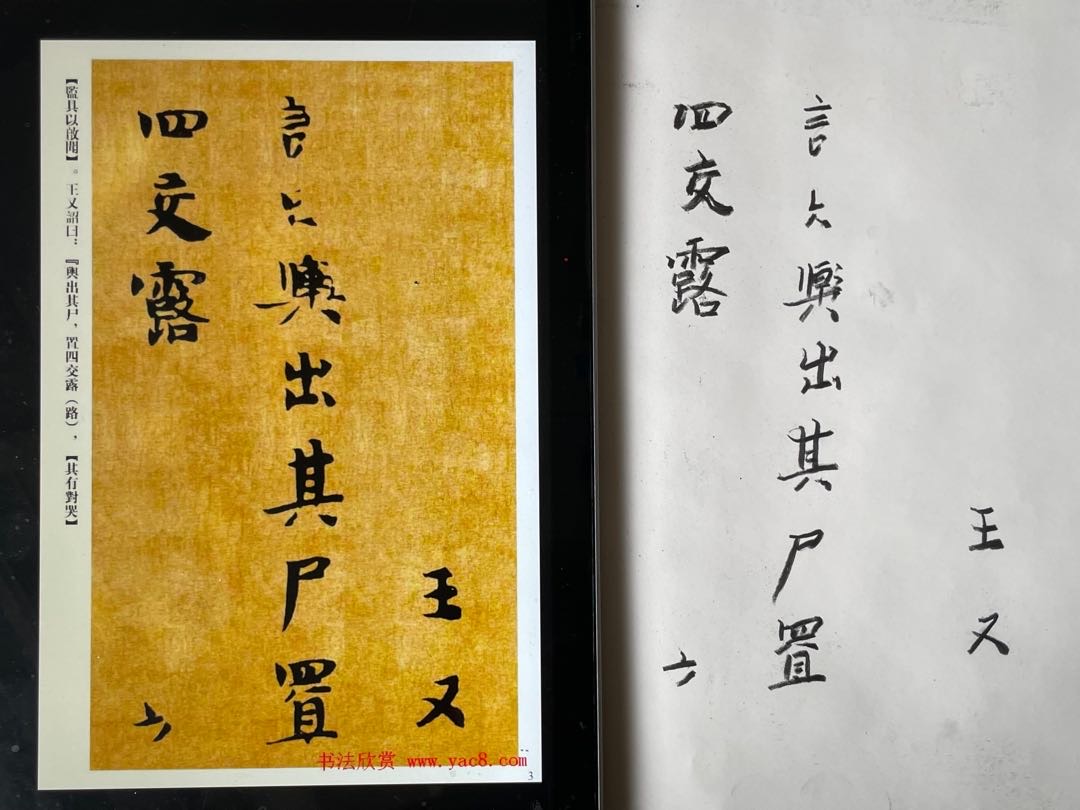 王又
言輿出其尸置
四交露
【監具以啟聞】。王又詔曰：『輿出其尸，置四交露（路），【其有對哭】
书法欣赏 www.yac8.com
3
王又
言輿出其尸置
四交露